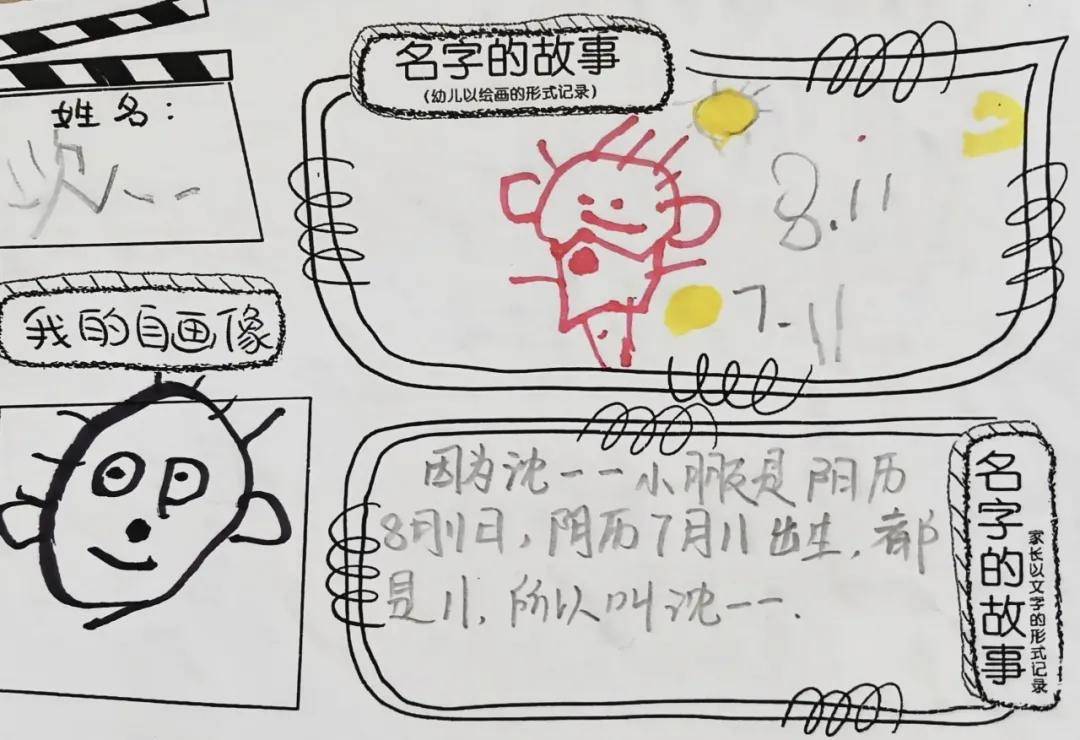 名字的故事
(幼儿以绘画的形式记录)
姓名:
沈一一
8.11
7.11
我的自画像
因为沈一一小朋友是阳历
8月11日,阴历7月11出生,都
是11,所以叫沈一一.
名字的故事
家长以文字的形式记录